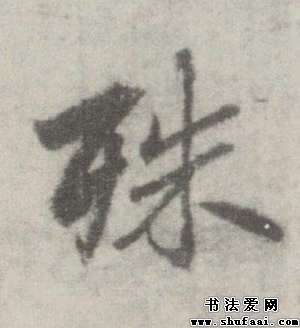 殊
书法爱网
www.shufaai.com